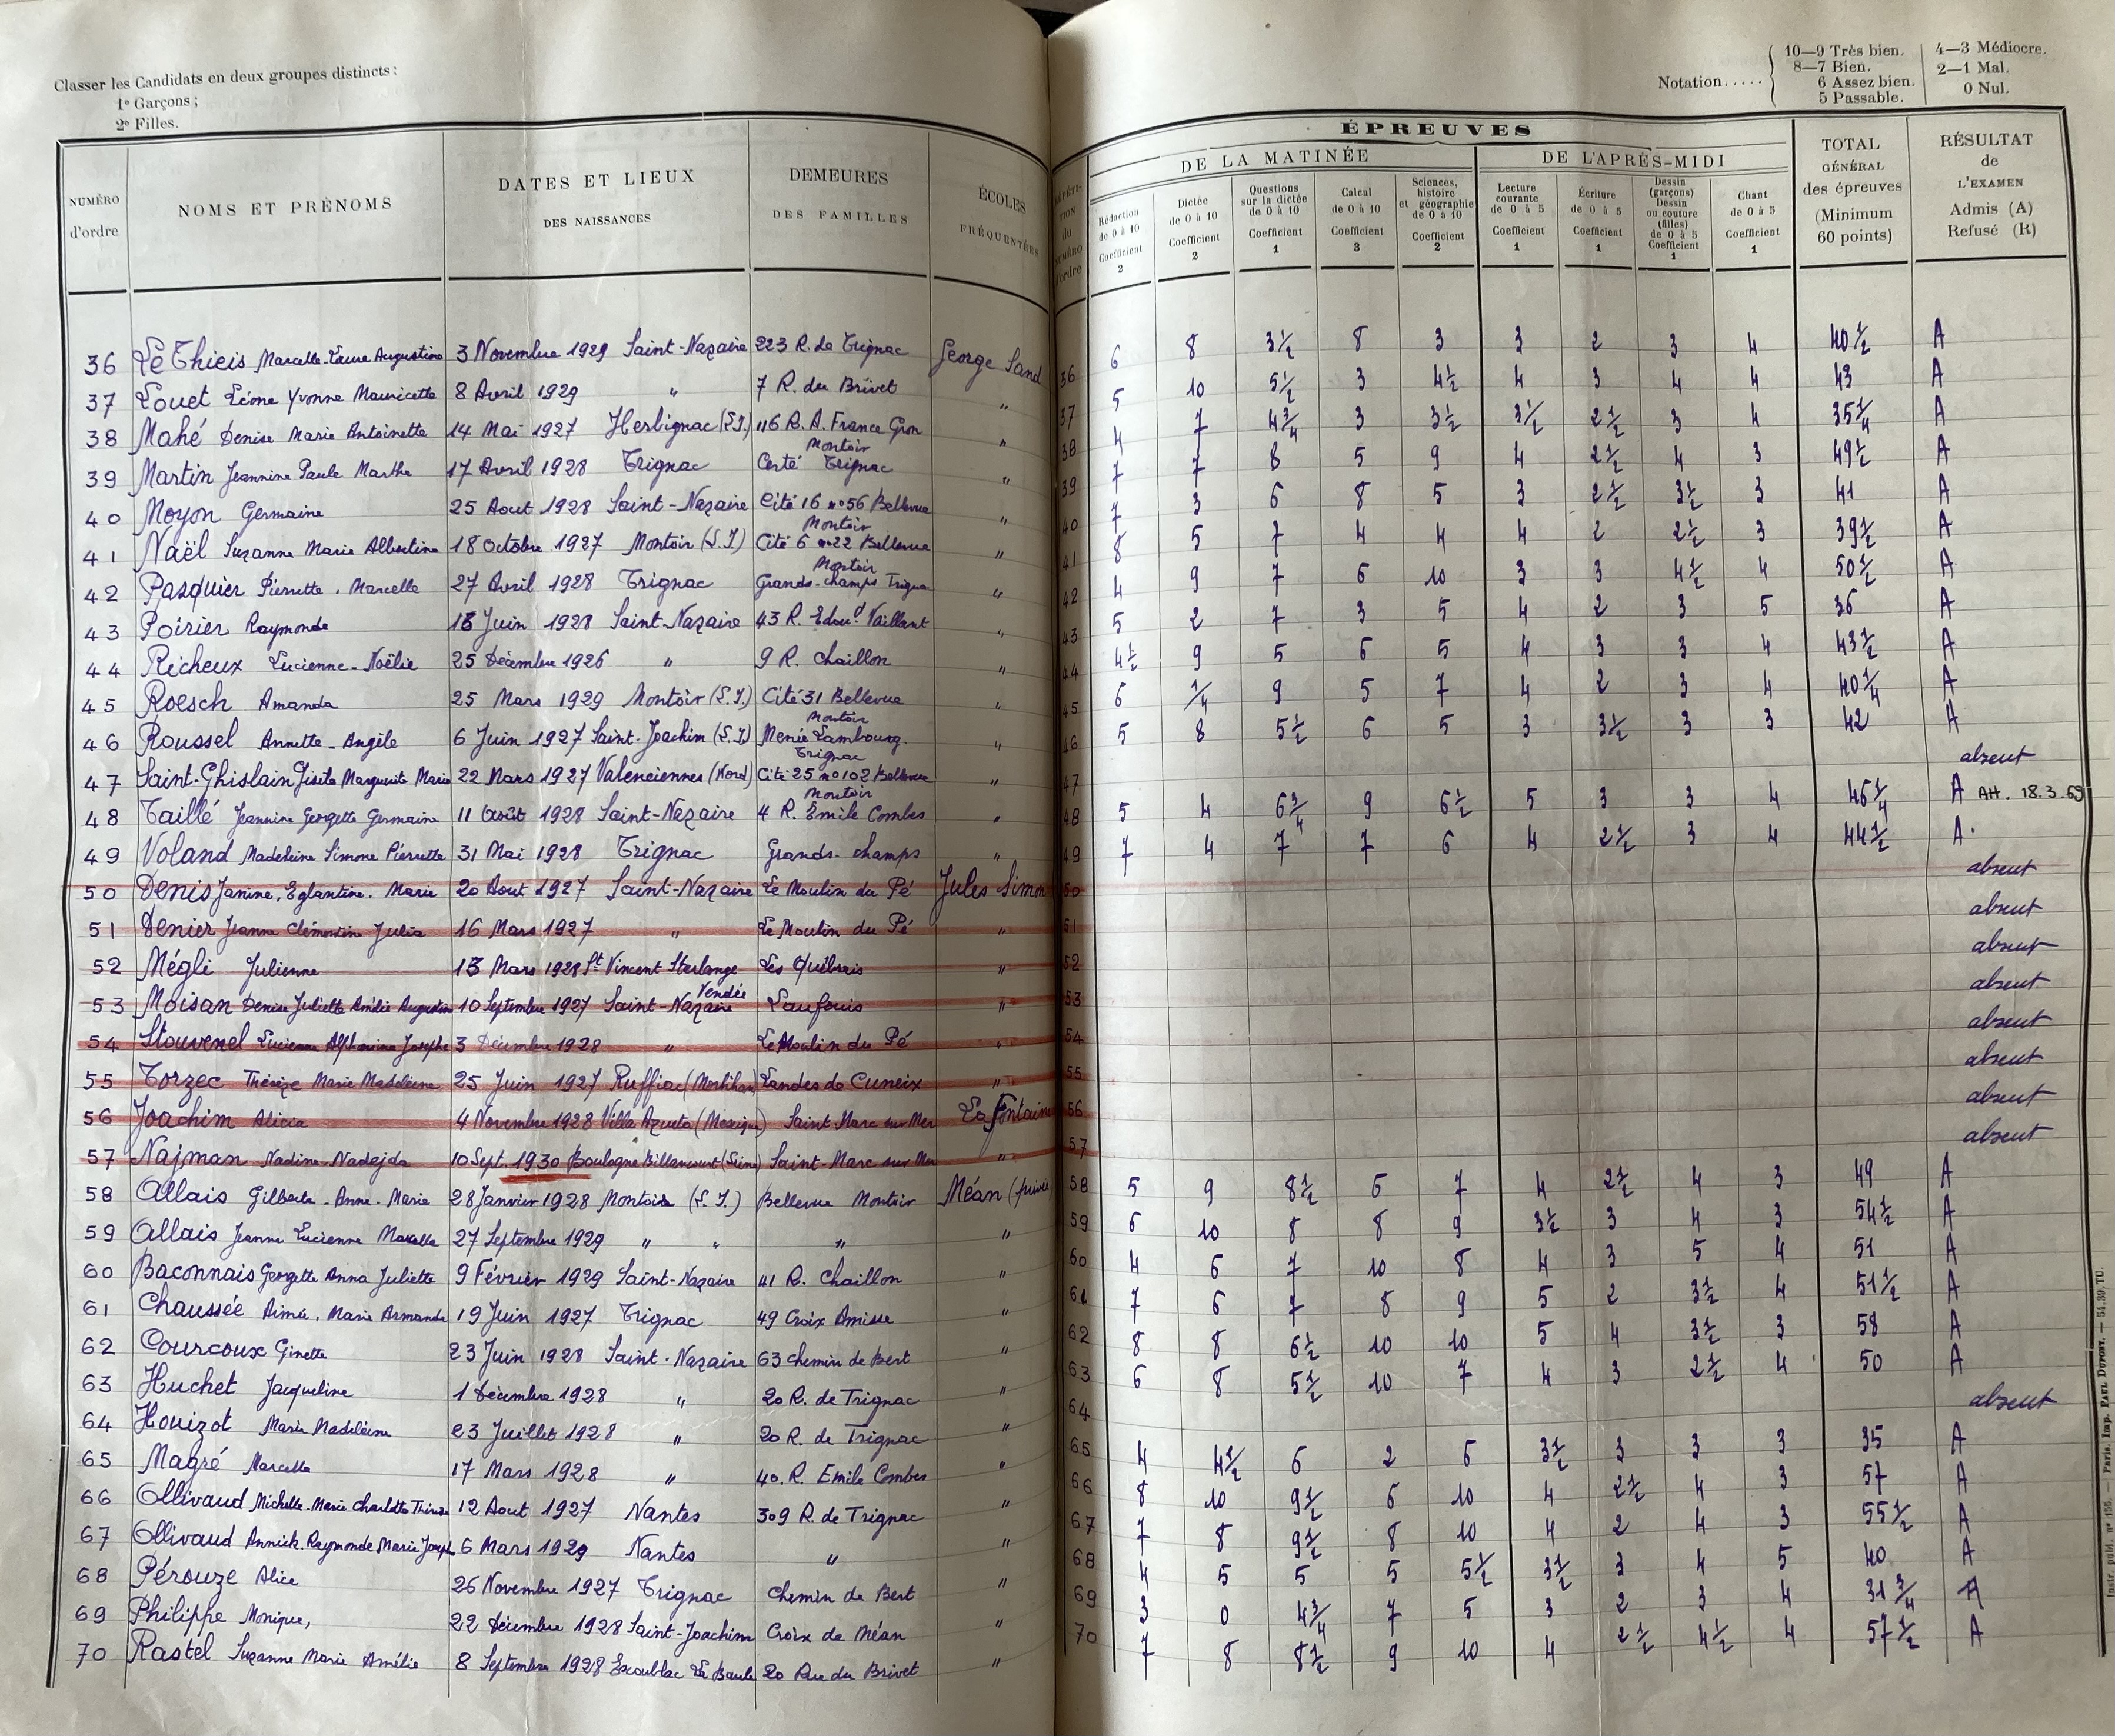 Classer les Candidats en deux groupes distincts :
1º Garçons ;
2º Filles.
Notation..... 10—9 Très bien. 4—3 Médiocre.
8—7 Bien. 2—1 Mal.
6 Assez bien. 0 Nul.
5 Passable.
NUMÉRO d'ordre
NOMS ET PRÉNOMS
DATES ET LIEUX DES NAISSANCES
DEMEURES DES FAMILLES
ÉCOLES FRÉQUENTÉES
RÉPÉTITION du NUMÉRO d'ordre
ÉPREUVES
DE LA MATINÉE
DE L'APRÈS-MIDI
Rédaction de 0 à 10 Coefficient 2
Dictée de 0 à 10 Coefficient 2
Questions sur la dictée de 0 à 10 Coefficient 1
Calcul de 0 à 10 Coefficient 3
Sciences, histoire et géographie de 0 à 10 Coefficient 2
Lecture courante de 0 à 5 Coefficient 1
Écriture de 0 à 5 Coefficient 1
Dessin (garçons) Dessin ou couture (filles) de 0 à 5 Coefficient 1
Chant de 0 à 5 Coefficient 1
TOTAL GÉNÉRAL des épreuves (Minimum 60 points)
RÉSULTAT de L'EXAMEN Admis (A) Refusé (R)
36 Le Thieis Marcelle-Laure Augustine 3 Novembre 1929 Saint-Nazaire 223 R. de Trignac George Sand 36 6 8 3½ 8 3 3 2 3 4 40½ A
37 Louet Léone Yvonne Mauricette 8 Avril 1929 " 7 R. du Brivet " 37 5 10 5½ 3 4½ 4 3 4 4 43 A
38 Mahé Denise Marie Antoinette 14 Mai 1927 Herbignac (L.I.) 116 R. A. France Gron Montoir " 38 4 7 4¾ 3 3½ 3½ 2½ 3 4 35¼ A
39 Martin Jeannine Paule Marthe 17 Avril 1928 Trignac Certé Trignac " 39 7 7 8 5 9 4 2½ 4 3 49½ A
40 Moyon Germaine 25 Aout 1928 Saint-Nazaire Cité 16 nº 56 Bellevue Montoir " 40 7 3 6 8 5 3 2½ 3½ 3 41 A
41 Naël Suzanne Marie Albertine 18 Octobre 1927 Montoir (L.I) Cité 6 nº 22 Bellevue Montoir " 41 8 5 7 4 4 4 2 2½ 3 39½ A
42 Pasquier Pierrette. Marcelle 27 Avril 1928 Trignac Grands-champs " 42 4 9 7 6 10 3 3 4½ 4 50½ A
43 Poirier Raymonde Juin 1928 Saint-Nazaire 43 R. Edou.d Vaillant " 43 5 2 7 3 5 4 2 3 5 36 A
44 Richeux Lucienne-Noëlie 25 Décembre 1926 " 9 R. Chaillon " 44 4½ 9 5 6 5 4 3 3 4 43½ A
45 Roesch Amanda 25 Mars 1929 Montoir (L.I.) Cité 31 Bellevue Montoir " 45 6 ¼ 9 5 7 4 2 3 4 40¼ A
46 Roussel Annette-Angèle 6 Juin 1927 Saint-Joachim (L.I) Menée Lambourg. Trignac " 46 5 8 5½ 6 5 3 3½ 3 3 42 A
47 Saint-Ghislain Gisèle Marguerite Marie 22 Mars 1927 Valenciennes (Nord) Cité 25 nº 102 Bellevue Montoir " 47 absent
48 Taillé Jeannine Georgette Germaine 11 Août 1928 Saint-Nazaire 4 R. Emile Combes " 48 5 4 6¾ 9 6½ 5 3 3 4 46¼ A AH. 18.3.69
49 Voland Madeleine Simone Pierrette 31 Mai 1928 Trignac Grands-champs " 49 7 4 7 7 6 4 2½ 3 4 44½ A.
50 Denis Janine, Eglantine. Marie 20 Aout 1927 Saint-Nazaire Le Moulin du Pé Jules Simon 50 absent
51 Denier Jeanne Clémentine Julia 16 Mars 1927 " Le Moulin du Pé " 51 absent
52 Mégli Julienne Mars 1928 St Vincent Sterlange Vendée Les Québrais " 52 absent
53 Moisan Denise Juliette Amélie Augustine 10 Septembre 1927 Saint-Nazaire " 53 absent
54 Stouvenel Lucienne Alphonsine Josephe 3 Décembre 1928 " Le Moulin du Pé " 54 absent
55 Torzec Thérèze Marie Madeleine 25 Juin 1927 Ruffiac (Morbihan) Landes de Cuneix " 55 absent
56 Joachim Alicia 4 Novembre 1928 Villa Azueta (Mexique) Saint Marc sur Mer La Fontaine 56 absent
57 Najman Nadine-Nadejda 10 Sept. 1930 Boulogne Billancourt (Seine) Saint-Marc sur Mer " 57 absent
58 Allais Gilberte-Anne-Marie 28 Janvier 1928 Montoir (L.I.) Bellevue Montoir Méan (privée) 58 5 9 8½ 6 7 4 2½ 4 3 49 A
59 Allais Jeanne Lucienne Marcelle 27 Septembre 1929 " " " " 59 6 10 8 8 9 3½ 3 4 3 54½ A
60 Baconnais Georgette Anna Juliette 9 Février 1929 Saint-Nazaire 41 R. Chaillon " 60 4 6 7 10 8 4 3 5 4 51 A
61 Chaussée Aimée. Marie Armande 19 Juin 1927 Trignac 49 Croix Amisse " 61 7 6 7 8 9 5 2 3½ 4 51½ A
62 Courcoux Ginette 23 Juin 1928 Saint-Nazaire 63 Chemin de Bert " 62 8 8 6½ 10 10 5 4 3½ 3 58 A
63 Huchet Jacqueline 1 Décembre 1928 " 20 R. de Trignac " 63 6 8 5½ 10 7 4 3 2½ 4 50 A
64 Houizot Marie Madeleine 23 Juillet 1928 " 20 R. de Trignac " 64 absent
65 Magré Marcelle 17 Mars 1928 " 40. R. Emile Combes " 65 4 4½ 6 2 6 3½ 3 3 3 35 A
66 Ollivaud Michelle-Marie Charlotte Thérèse 12 Aout 1927 Nantes 309 R. de Trignac " 66 8 10 9½ 6 10 4 2½ 4 3 57 A
67 Ollivaud Annick. Raymonde Marie Joseph 6 Mars 1929 Nantes " " 67 7 8 9½ 8 10 4 2 4 3 55½ A
68 Pérouze Alice 26 Novembre 1927 Trignac Chemin de Bert " 68 4 5 5 5 5½ 3½ 3 4 5 40 A
69 Philippe Monique, 22 Décembre 1928 Saint-Joachim Croix de Méan " 69 3 0 4¾ 7 5 3 2 3 4 31¾ A
70 Rastel Suzanne Marie Amélie 8 Septembre 1928 Escoublac La Baule 20 Rue du Brivet " 70 7 8 8½ 9 10 4 2½ 4½ 4 57½ A
Instr. publ. nº 155. — Paris. Imp. PAUL DUPONT. — 54.39.TU.